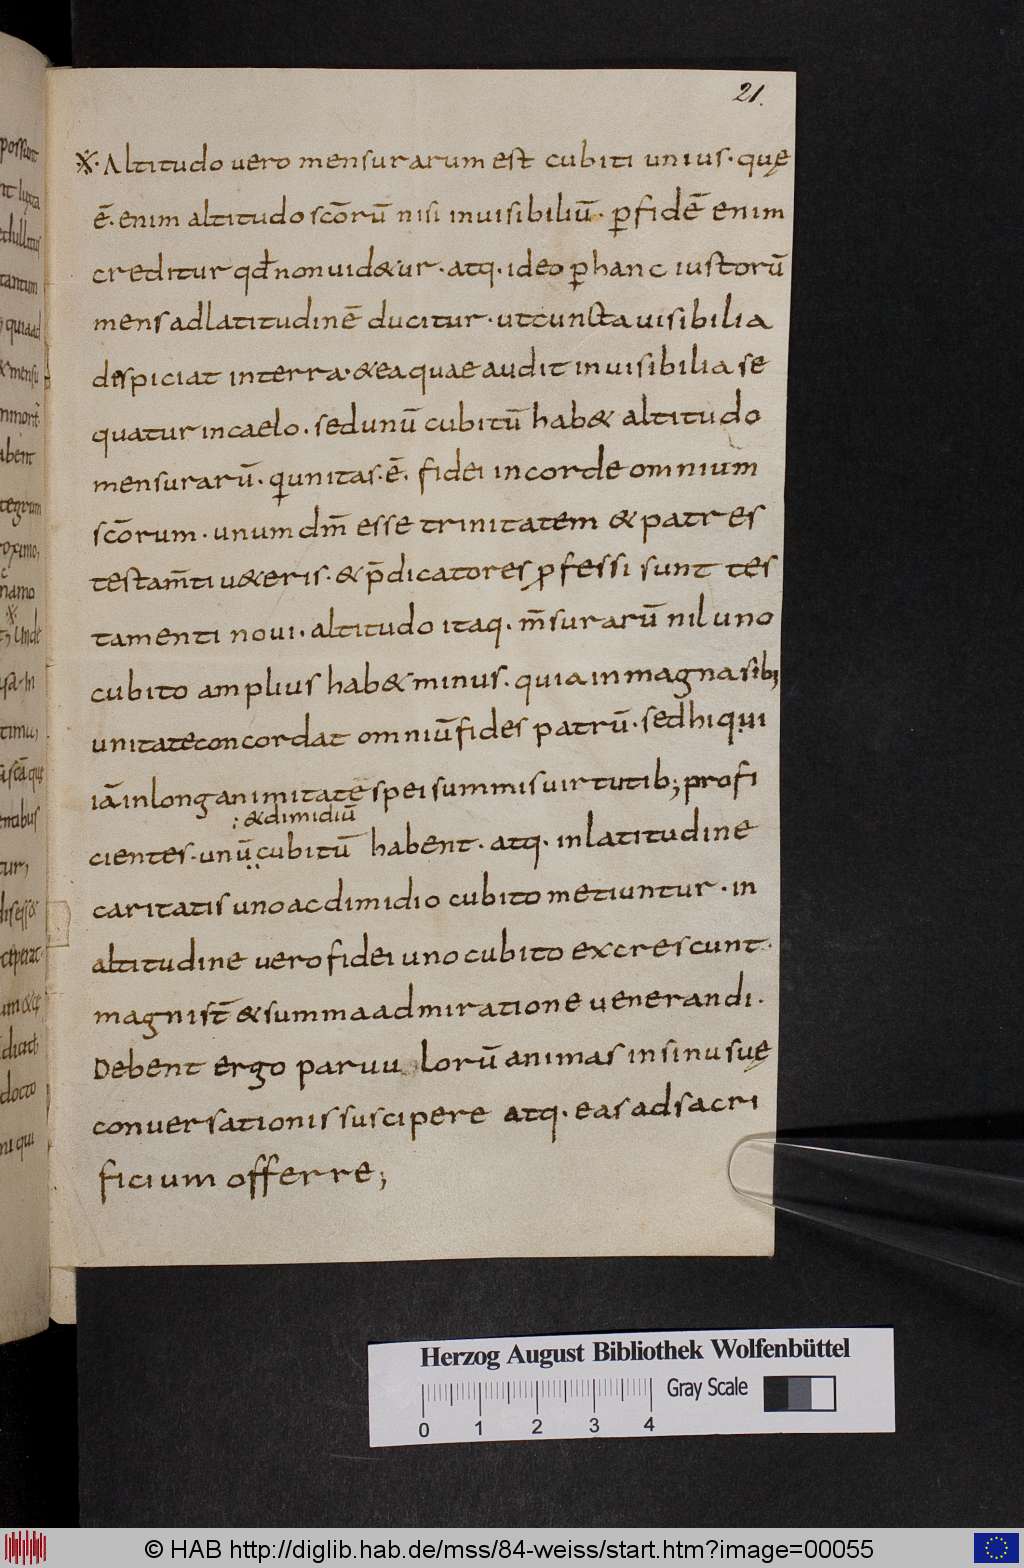 21.
※· Altitudo vero mensurarum est cubiti unius· quę
ē· enim altitudo scōrū nisi invisibiliū· ꝑ fidē enim
creditur qđ non vid&ur· atq· ideo ꝑ hanc iustorū
mens ad latitudinē ducitur· ut cuncta visibilia
despiciat in terra· & ea quae audit invisibilia se
quatur in caelo. sed unū cubitū hab& altitudo
mensurarū· q; unitas· ē· fidei in corde omnium
scōrum· unum dm̄ esse trinitatem & patres
testam̄ti u&eris· & p̄dicatores ꝓfessi sunt tes
tamenti novi· altitudo itaq· m̄surarū nil uno
cubito amplius hab& minus· quia in magna sib;
unitate concordat omniū fides patrū· sed hi qui
iā in longanimitate spei summis virtutib; profi
: & dimidiū
cientes· unū cubitū habent· atq· in latitudine
caritatis uno ac dimidio cubito metiuntur· in
altitudine vero fidei uno cubito excrescunt·
magni st̄ & summa admiratione venerandi·
Debent ergo parvulorū animas in sinu suę
conversationis suscipere atq· eas ad sacri
ficium offerre;
Herzog August Bibliothek Wolfenbüttel
Gray Scale
0 1 2 3 4
© HAB http://diglib.hab.de/mss/84-weiss/start.htm?image=00055